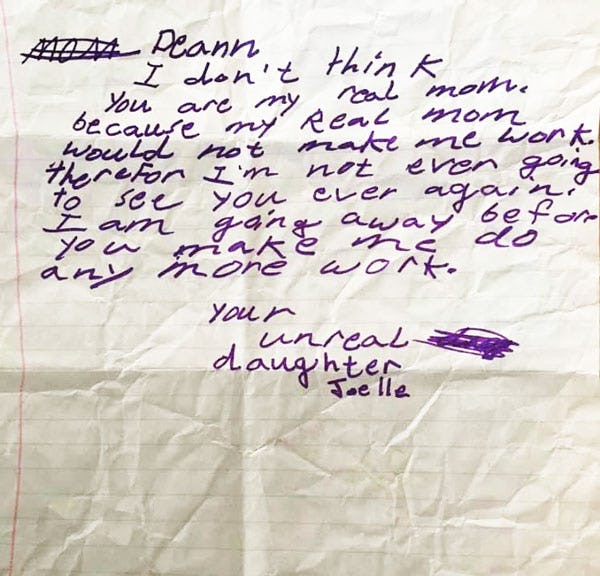 MOM Deann
I don't think
You are my real mom.
because my Real mom
would not make me work.
therefor I'm not ever going
to see you ever again.
I am going away before
you make me do
any more work.
your
unreal
daughter
Joelle